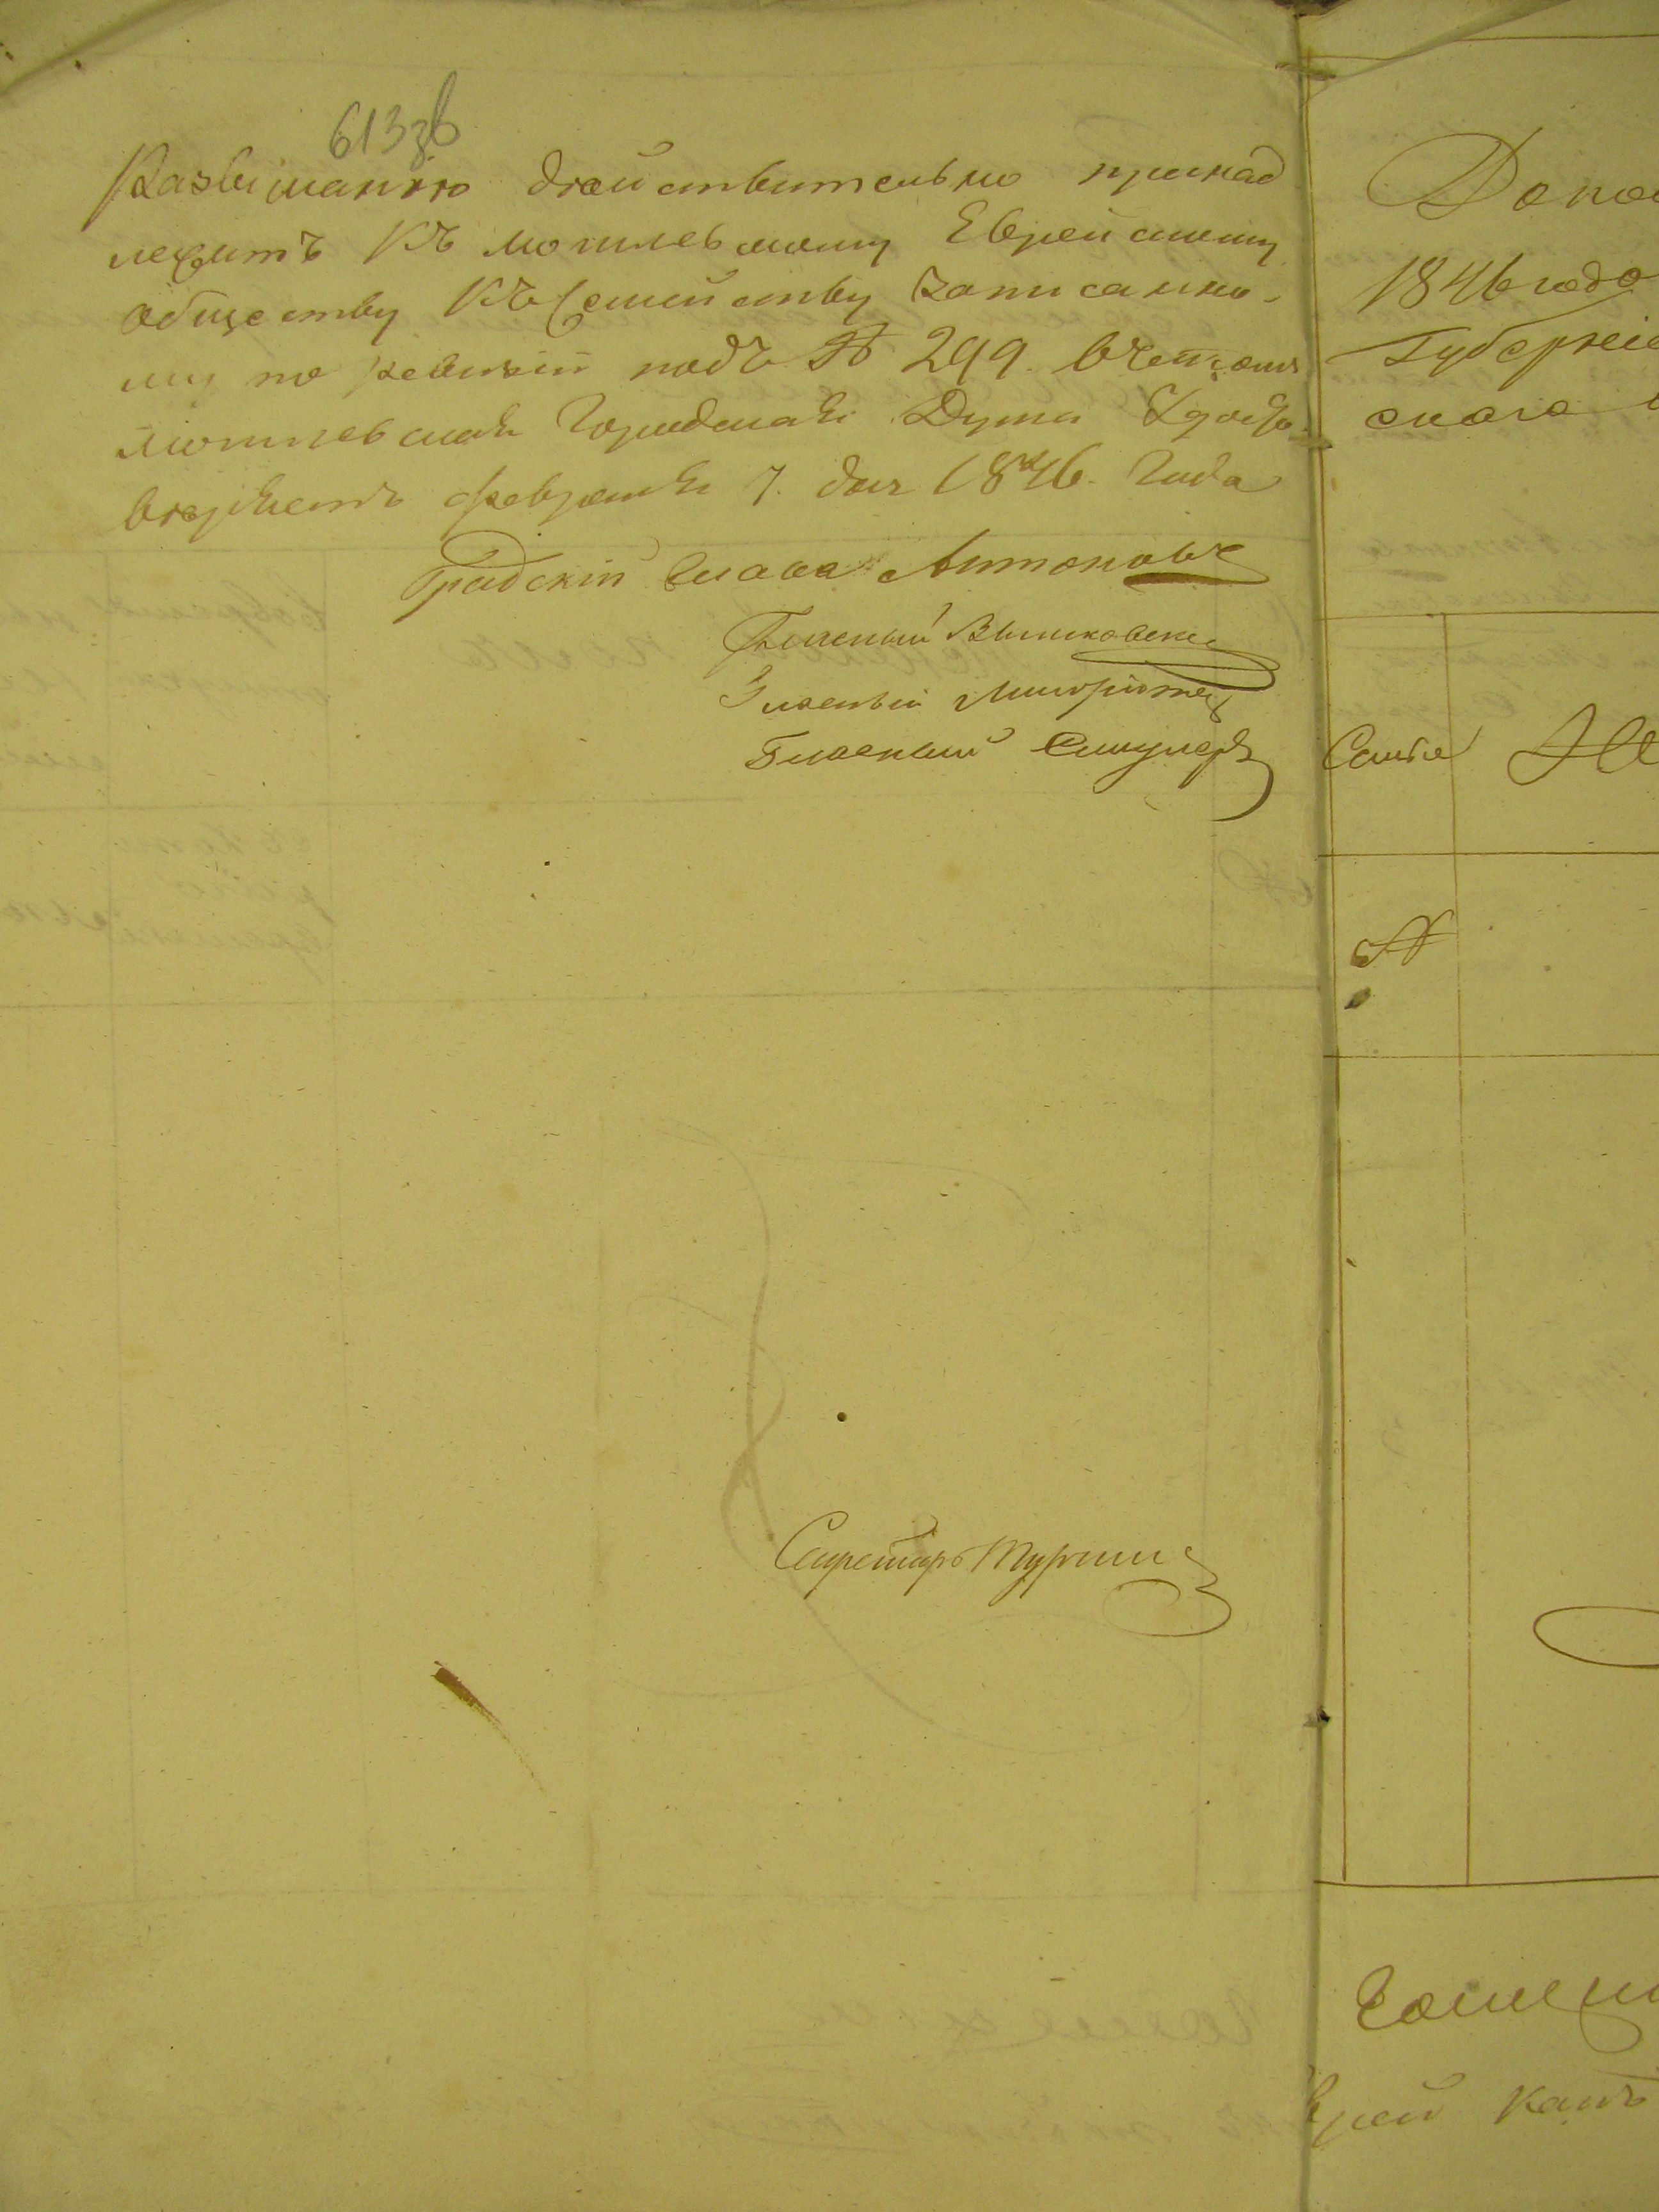 613 зв
дѣйствительно принад
лежитъ Къ Могилевскому Еврейскому
обществу Къ Семейству Записанно-
му по ревизіи подъ № 299. В чемъ
Могилевская Городская Дума Удосто-
вѣряетъ февраля 7. дня 1846. Года
Градскій Глава Антоновъ
Гласный
Гласный
Гласный
Секретарь
Допол
1846 года
Губерніи
скаго
Семьи
№
Евреи Какъ